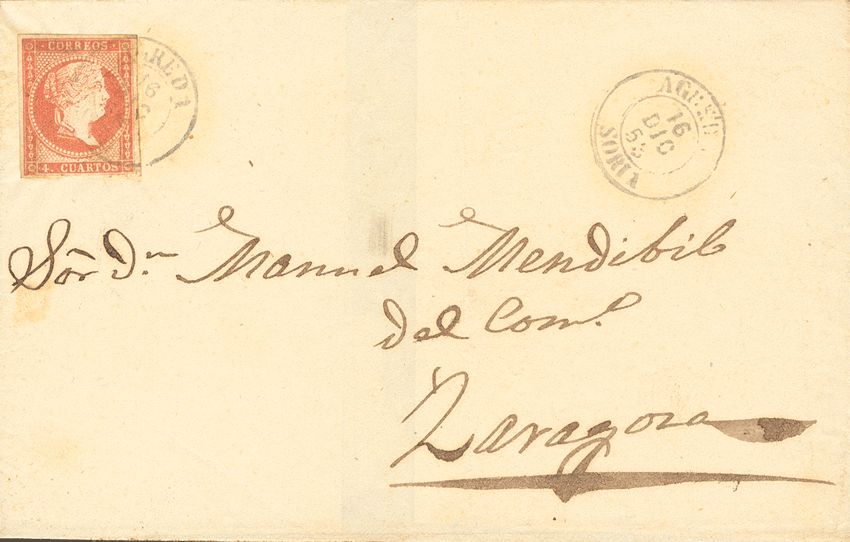 CORREOS
4. CUARTOS
AGREDA
16
AGREDA
16
DIC
SORIA
Sōr Dn Manuel Mendibil
del Como.
Zaragoza